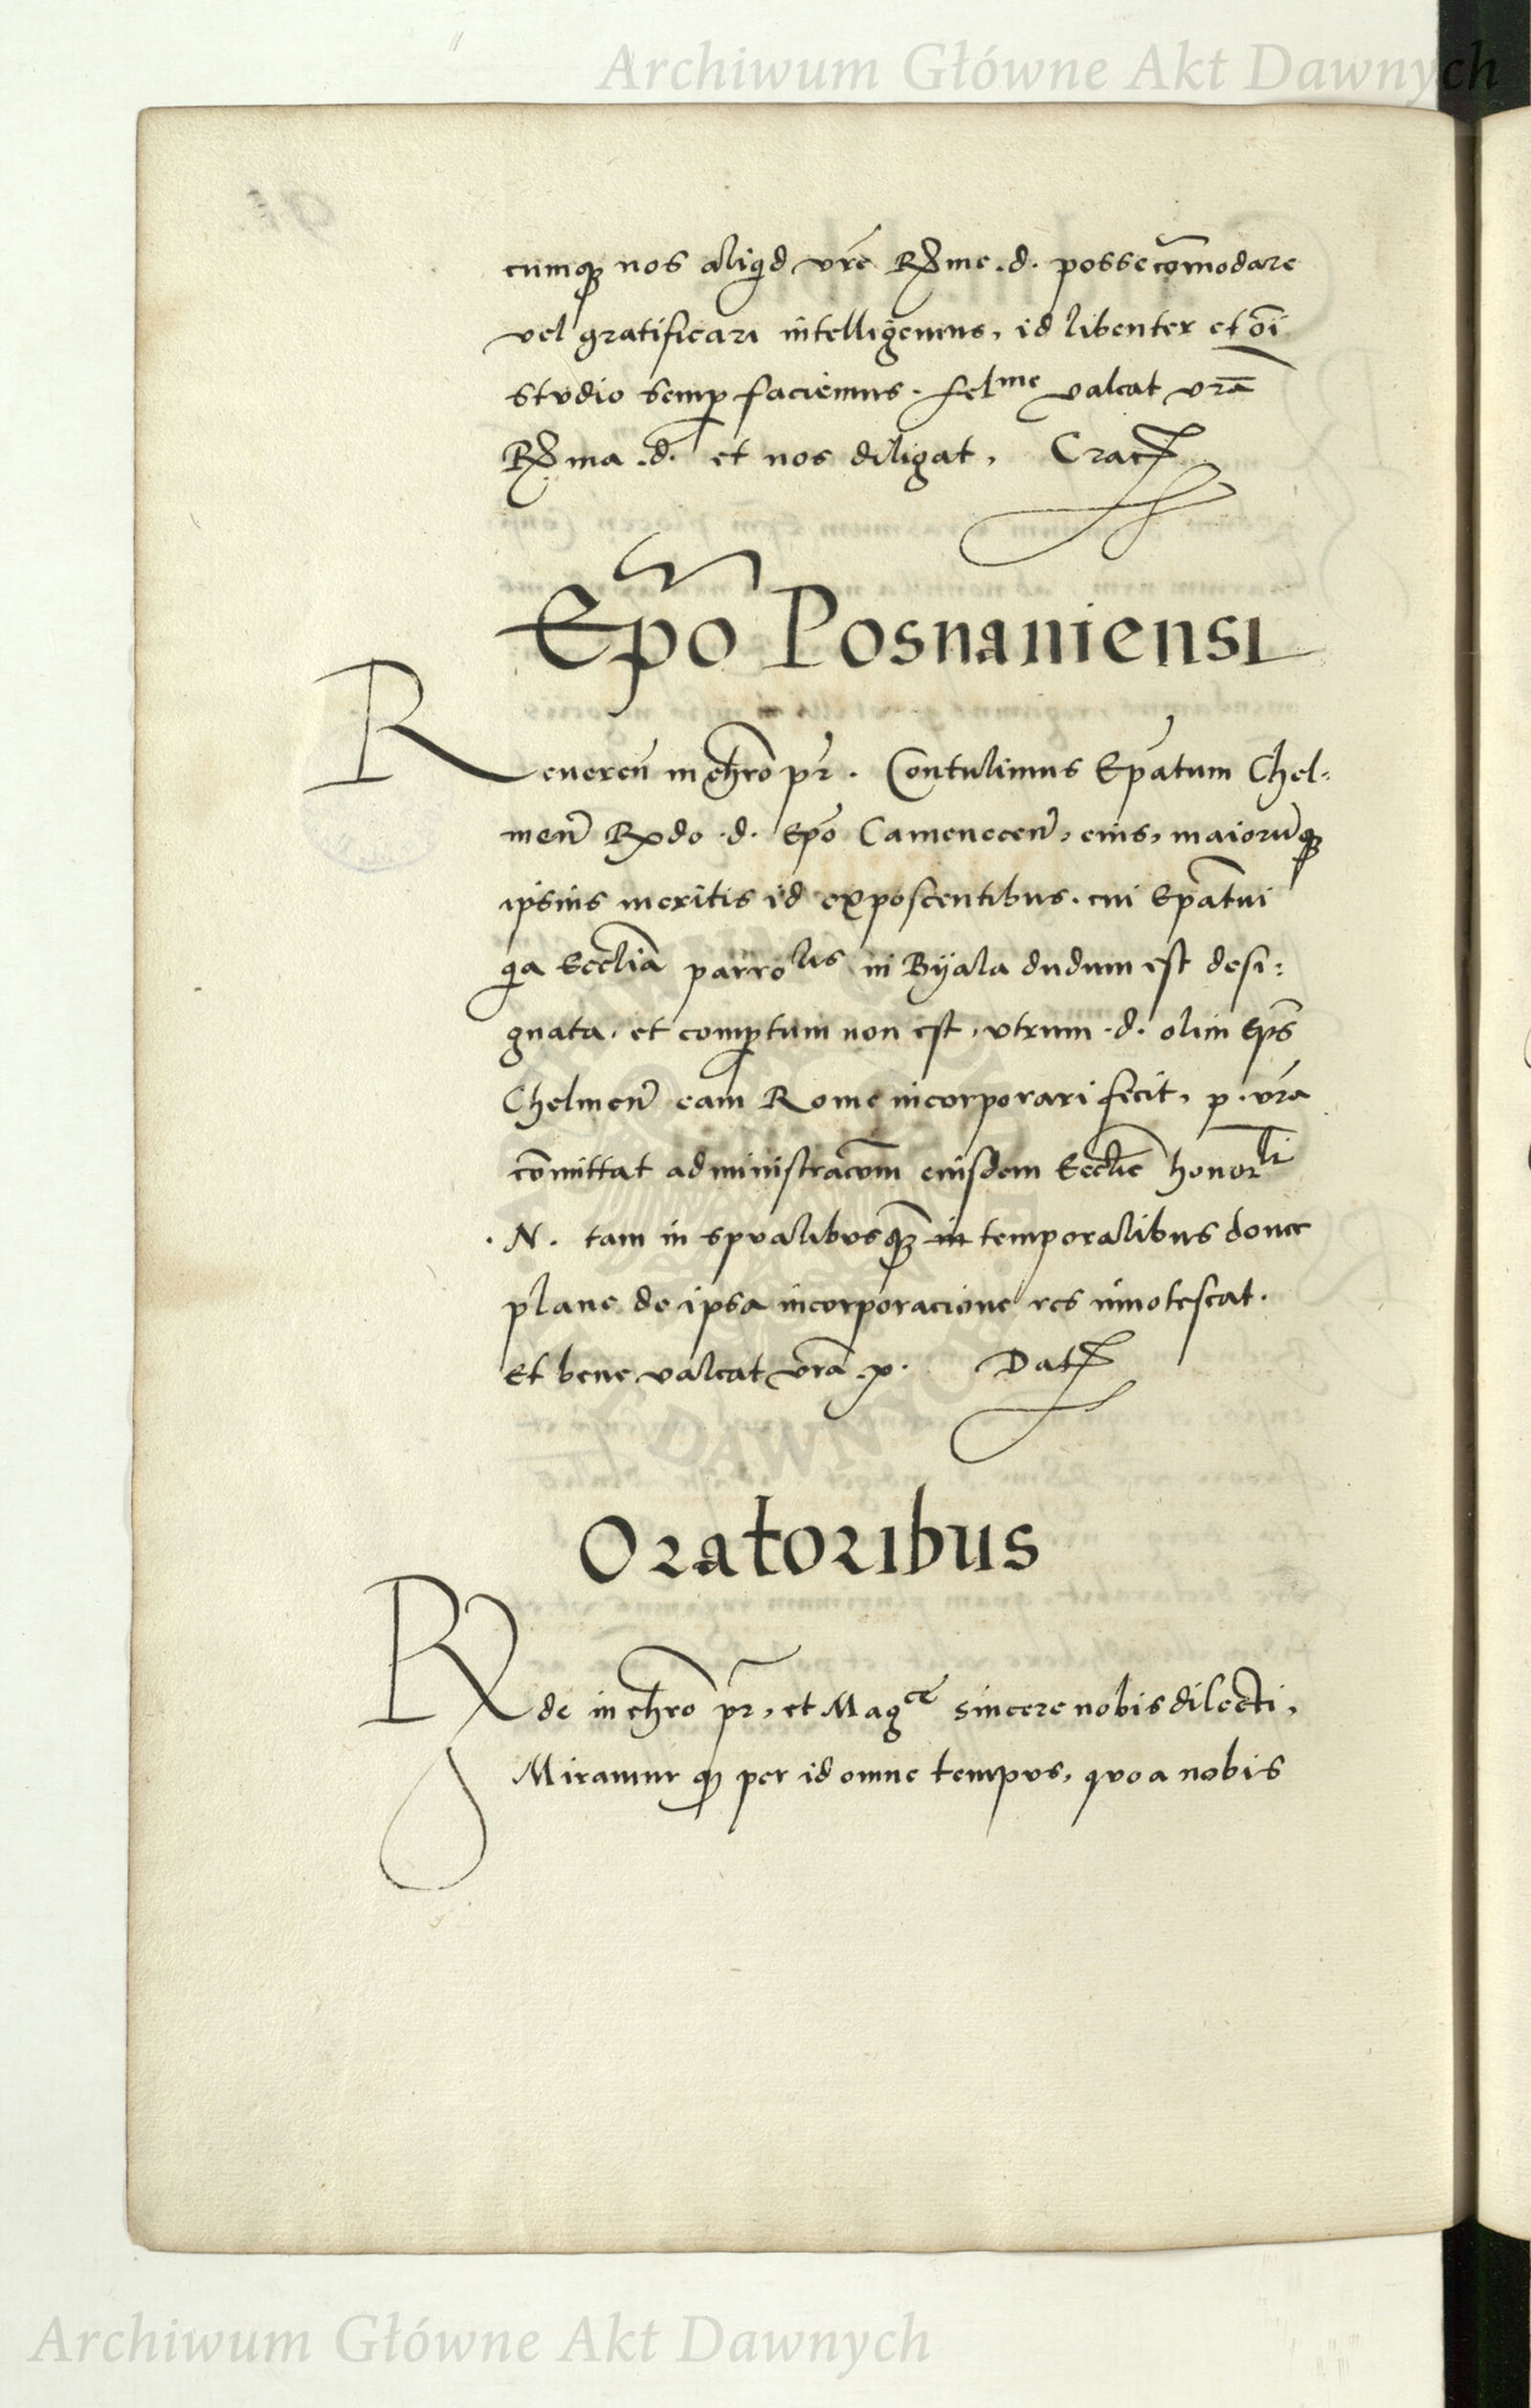 Archiwum Główne Akt Dawnych
cumq3 nos aliqd vr̃e R̃me .d. posse com̃odare
vel gratificari intelligemus, id libenter et om̃i
studio semp faciemus. Felme valeat vrã
R̃ma .d. et nos diligat, Crac
Ep̃o Posnaniensi
Reveren̄ in chr̃o pr̃. Contulimus Ep̃atum Chel=
men̄ Rdo .d. Ep̃o Camenecen̄, eius, maiorũq3
ipsius meritis id exposcentibus. cui Ep̃atui
qa Eccliã parrolis in Byala dudum est desi=
gnata, et comptum non est, utrum .d. olim Ep̃s
Chelmen̄ eam Rome incorporari fecit, p. vr̃a
com̃ittat administracõm eiusdem Ecclie honorli
.N. tam in spualibus q3 in temporalibus donec
plane de ipsa incorporacione res innotescat.
Et bene valeat vrã .p. Dat
Oratoribus
Rde in chr̃o pr̃, et Magce sincere nobis dilecti,
Miramur q3 per id omne tempus, quo a nobis
Archiwum Główne Akt Dawnych